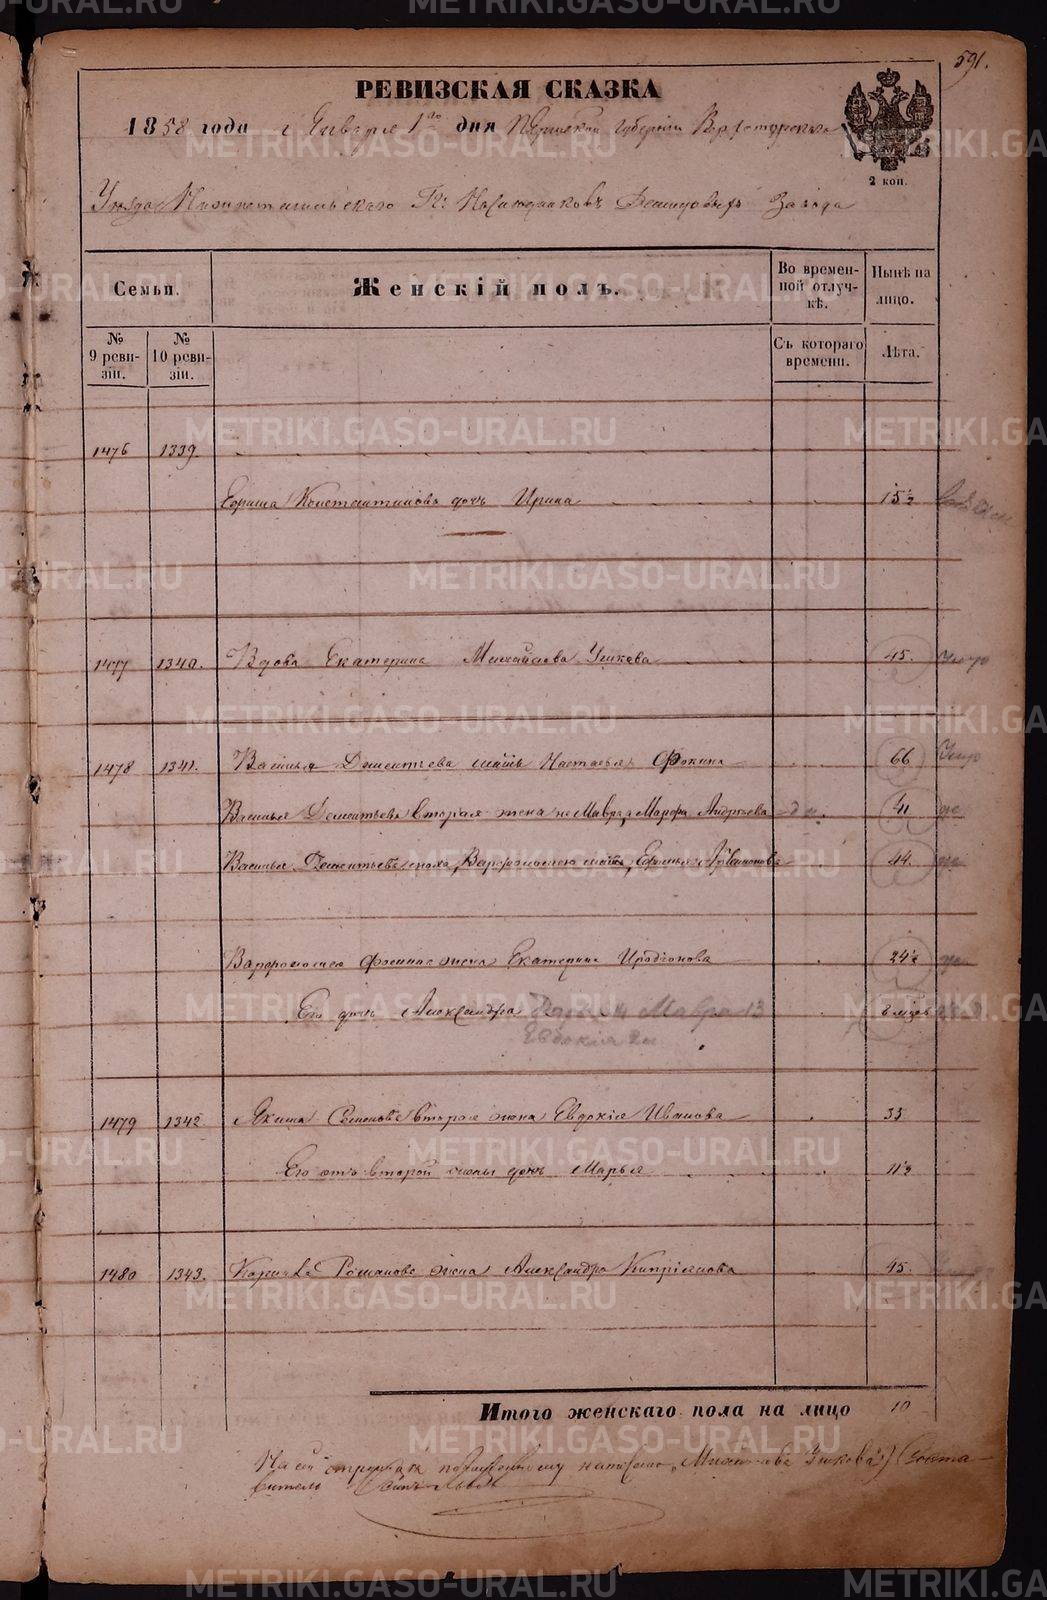 591.
РЕВИЗСКАЯ СКАЗКА
1858 года Января 1го дня Пермской Губернии Верхотурскаго
2 коп.
Уезда Нижнетагильскаго Гг. Наследниковъ Демидовыхъ Завода
Семьи.
Женскій полъ.
Во времен-
ной отлуч-
кѣ.
Нынѣ на
лицо.
№
9 реви-
зіи.
№
10 реви-
зіи.
Съ котораго
времени.
Лѣта.
1476 1339.
Ефима Константинова дочь Ирина 15½
1477 1340. Вдова Екатерина Михайлова Ушкова 45.
1478 1341. Василья Дементьева мать Настасья Фокина 66
Василья Дементьева вторая жена не Мавра, а Марфа Андреева 41
Василья Дементьева сноха, Варфоломея мать, Ефимья 44
Варфоломея Фомина жена Екатерина Иродіонова 24½
Его дочь Александра Мавра 13
Евдокия
1479 1342 Якима Семенова вторая жена Евдокія Иванова 35
Его отъ второй жены дочь Марья 11½
1480 1343. Романова жена Александра Кипріянова 45.
Итого женскаго пола на лицо 10
На сей странице по написано „Михайлова Ушкова"
METRIKI.GASO-URAL.RU